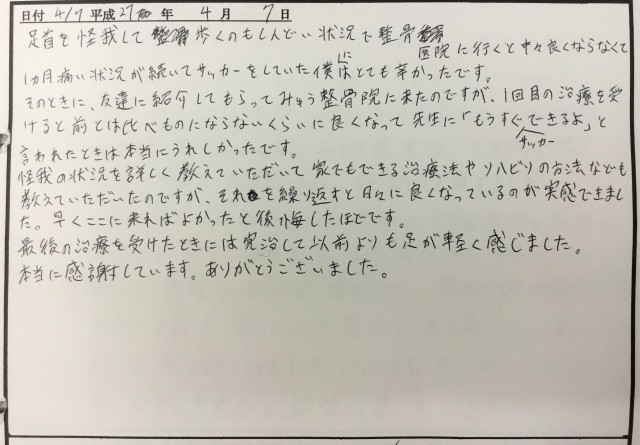 日付 4/7 平成27年 4月 7日
足首を怪我して歩くのもしんどい状況で整骨医院に行くと中々良くならなくて
1カ月痛い状況が続いてサッカーをしていた僕にはとても辛かったです。
そのときに、友達に紹介してもらってみゅう整骨院に来たのですが、1回目の治療を受
けると前とは比べものにならないくらいに良くなって先生に「もうすぐサッカーできるよ」と
言われたときは本当にうれしかったです。
怪我の状況を詳しく教えていただいて家でもできる治療法やリハビリの方法なども
教えていただいたのですが、それを繰り返すと日々に良くなっているのが実感できまし
た。早くここに来ればよかったと後悔したほどです。
最後の治療を受けたときには完治して以前よりも足が軽く感じました。
本当に感謝しています。ありがとうございました。